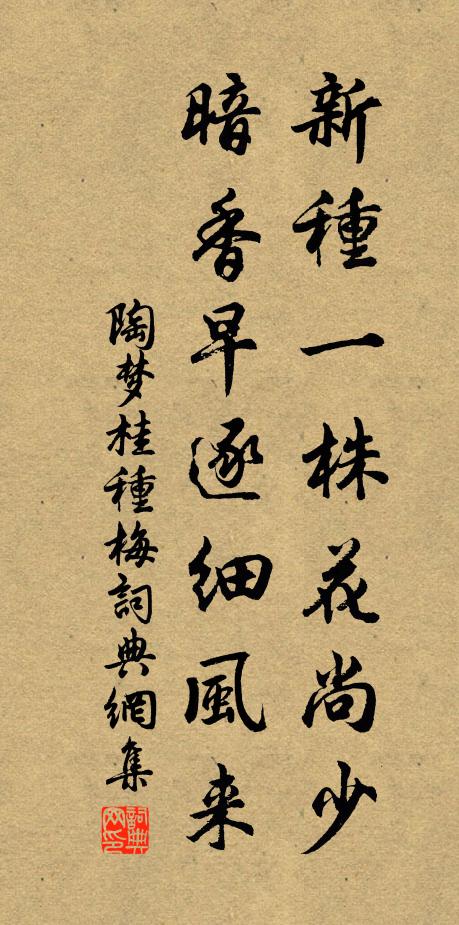 新種一株花尚少
暗香早逐細風来
陶梦桂種梅詞典網集
詞典網印